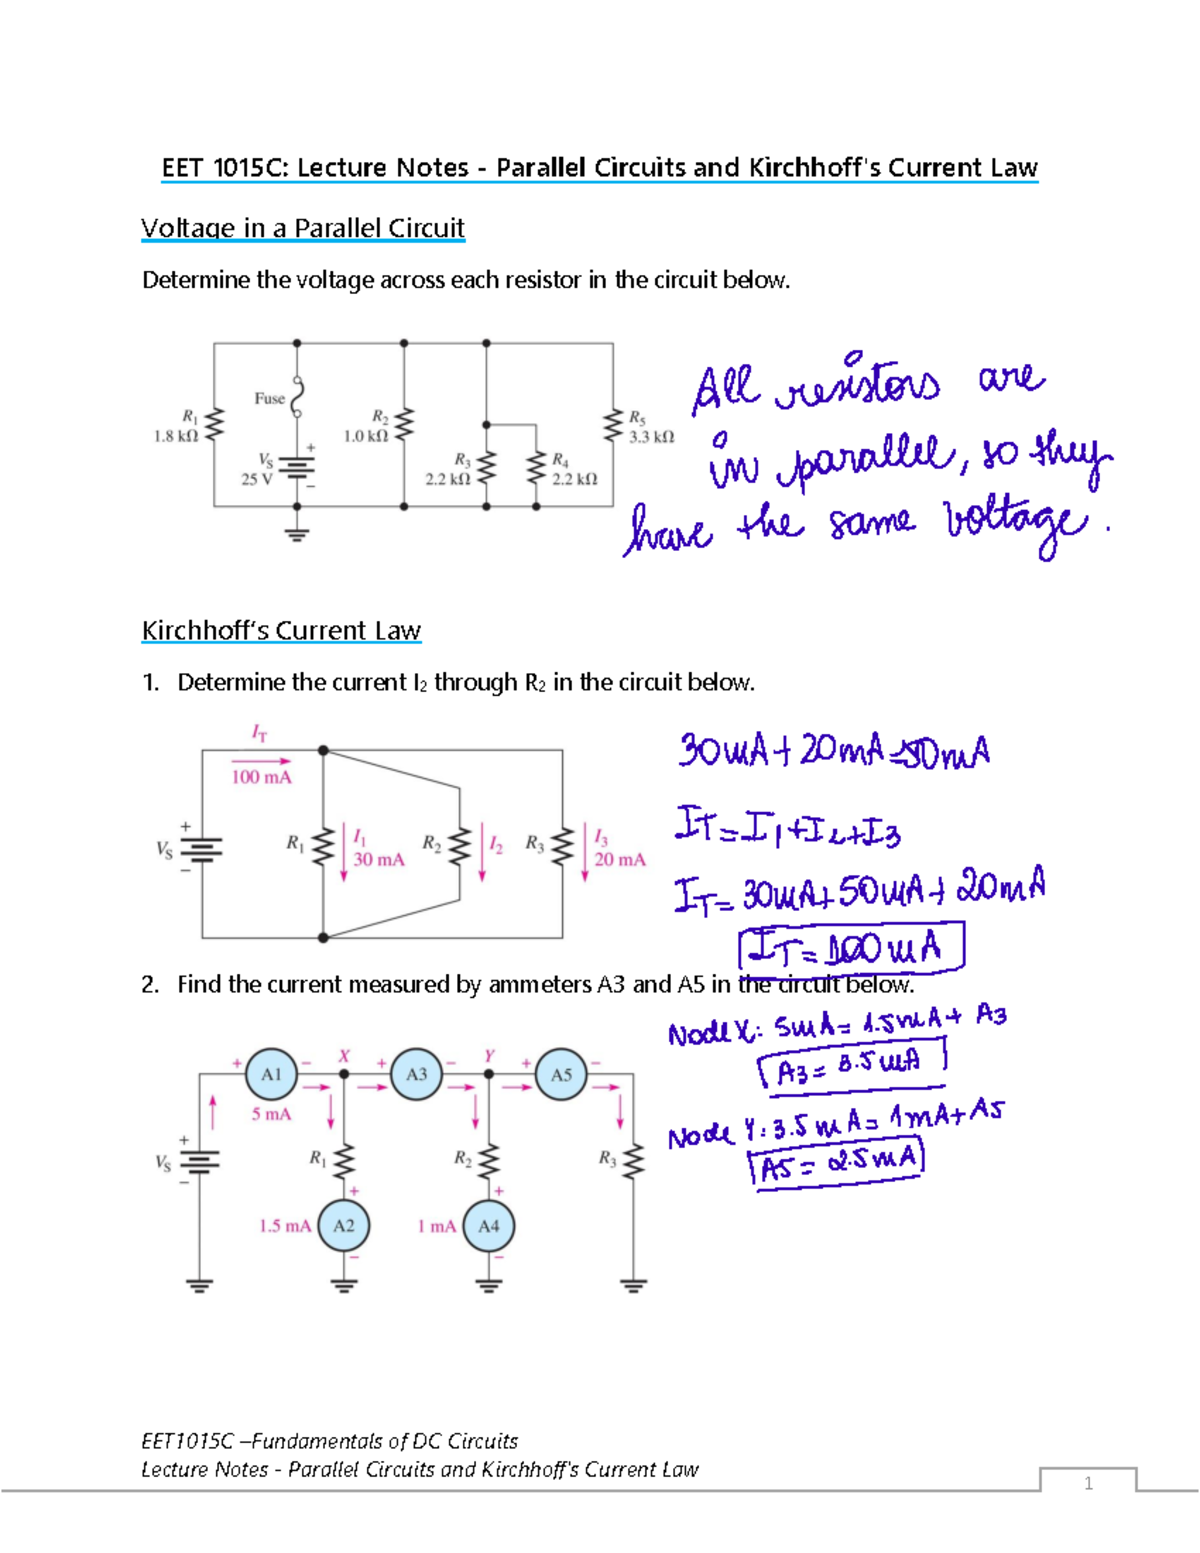 EET 1015C: Lecture Notes - Parallel Circuits and Kirchhoff's Current Law
Voltage in a Parallel Circuit
Determine the voltage across each resistor in the circuit below.
Fuse
R1
1.8 kΩ
VS
25 V
+
−
R2
1.0 kΩ
R3
2.2 kΩ
R4
2.2 kΩ
R5
3.3 kΩ
All resistors are
in parallel, so they
have the same voltage.
Kirchhoff's Current Law
1. Determine the current I2 through R2 in the circuit below.
IT
100 mA
+
VS
−
R1
I1
30 mA
R2
I2
R3
I3
20 mA
30mA+20mA=50mA
IT=I1+I2+I3
IT=30mA+50mA+20mA
IT=100mA
2. Find the current measured by ammeters A3 and A5 in the circuit below.
+ A1 − X + A3 − Y + A5 −
5 mA
+
VS
−
R1
R2
R3
+ +
1.5 mA A2 1 mA A4
− −
Node X: 5mA=1.5mA+A3
A3=3.5mA
Node Y: 3.5mA=1mA+A5
A5=2.5mA
EET1015C –Fundamentals of DC Circuits
Lecture Notes - Parallel Circuits and Kirchhoff's Current Law
1